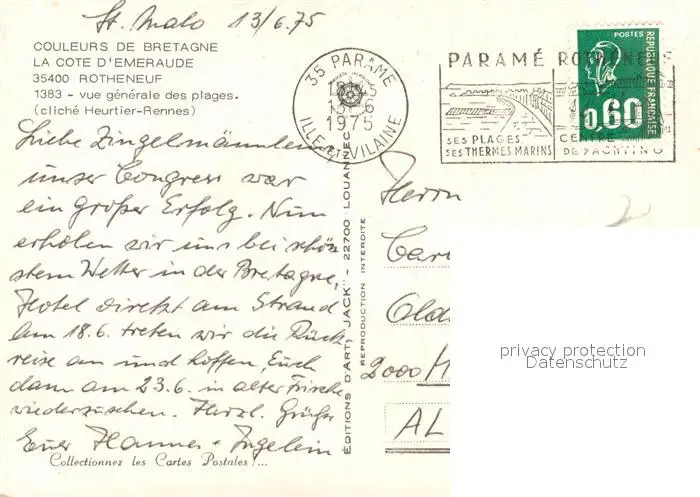 St. Malo 13/6.75
COULEURS DE BRETAGNE
LA COTE D'EMERAUDE
35400 ROTHENEUF
1383 - vue générale des plages.
(cliché Heurtier-Rennes)
Liebe Zingelmännlein
unser Congress war
ein großer Erfolg. Nun
erholen wir uns bei schön-
stem Wetter in der Bretagne,
Hotel direkt am Strand
Am 18.6. treten wir die Rück
reise an und hoffen, Euch
dann am 23.6. in alter Frische
wiederzusehen. Herzl. Grüße
Euer Hannes +
Collectionnez les Cartes Postales !...
EDITIONS D'ART "JACK" - 22700 LOUANNEC
REPRODUCTION INTERDITE
35 PARAME
13-6
1975
ILLE ET VILAINE
PARAMÉ ROTHENEUF
SES PLAGES
SES THERMES MARINS
CENTRE
DE YACHTING
POSTES
REPUBLIQUE FRANÇAISE
0,60
Herrn
Car
Old
2000 H
AL
privacy protection
Datenschutz